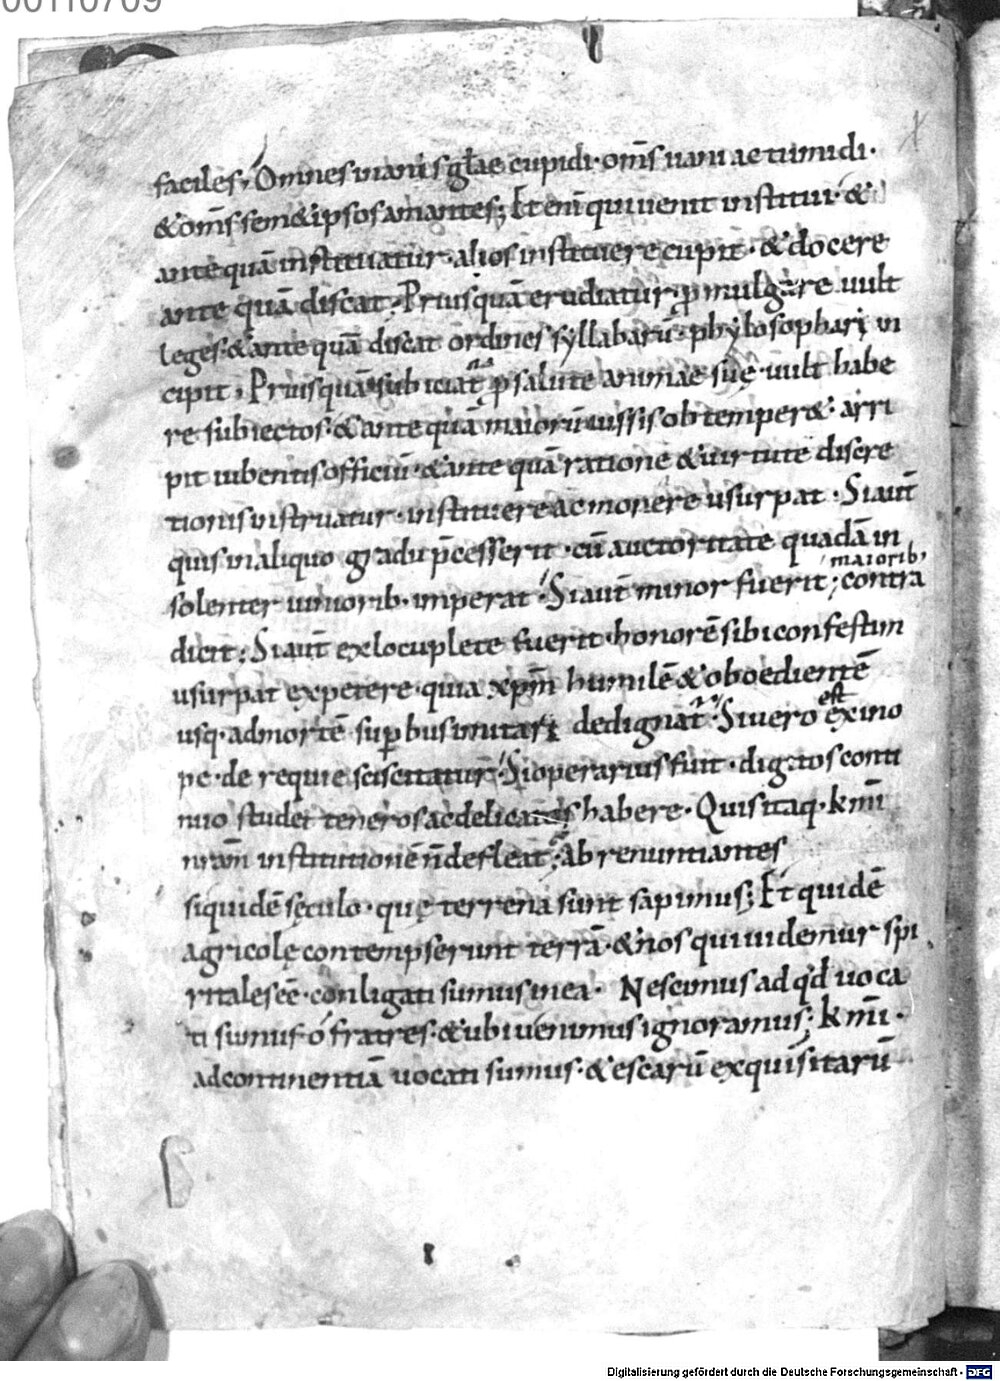 00110709
faciles, Omnes inanis glae cupidi· oms uani ac tumidi·
& oms sem& ipsos amantes; Et eni qui uenit institui· &
ante quā instituatur· alios instituere cupit· & docere
ante quā discat· Priusquā erudiatur· p mulgare uult
leges· & ante quā discat ordines syllabarū· phylosophari in
cipit, Priusquā subiciat p salute animae suę· uult habe
re subiectos· & ante quā maiorū iussis obtemper&· arri
pit iubentis officiū· & ante quā ratione & uirtute discre
tionis instruatur· instituere ac monere usurpat· Si aut
quis in aliquo gradu pcesserit· cū auctoritate quadā in
solenter minorib· imperat· Si aut minor fuerit; maiorib, contra
dicit; Si aut ex locuplete fuerit· honorē sibi confestim
usurpat expetere· quia xpm humilē & oboedientē
usq· ad mortē supbus imitari dedignat· Si uero est ex ino
pe· de requie sciscitatur· Si operarius fuit· digitos conti
nuo studet teneros ac delicatos habere· Quis itaq· kmi
nram institutionē n defleat; Ab renuntiantes
siquidē sęculo· quę terrena sunt sapimus; Et quidē
agricolę contempserunt terrā· & nos qui uidemur spi
ritales eē· conligati sumus in ea· Nescimus ad qd uoca
ti sumus· o fratres· & ubi uenimus ignoramus; kmi·
ad continentiā uocati sumus· & escarū exquisitarū
Digitalisierung gefördert durch die Deutsche Forschungsgemeinschaft - DFG